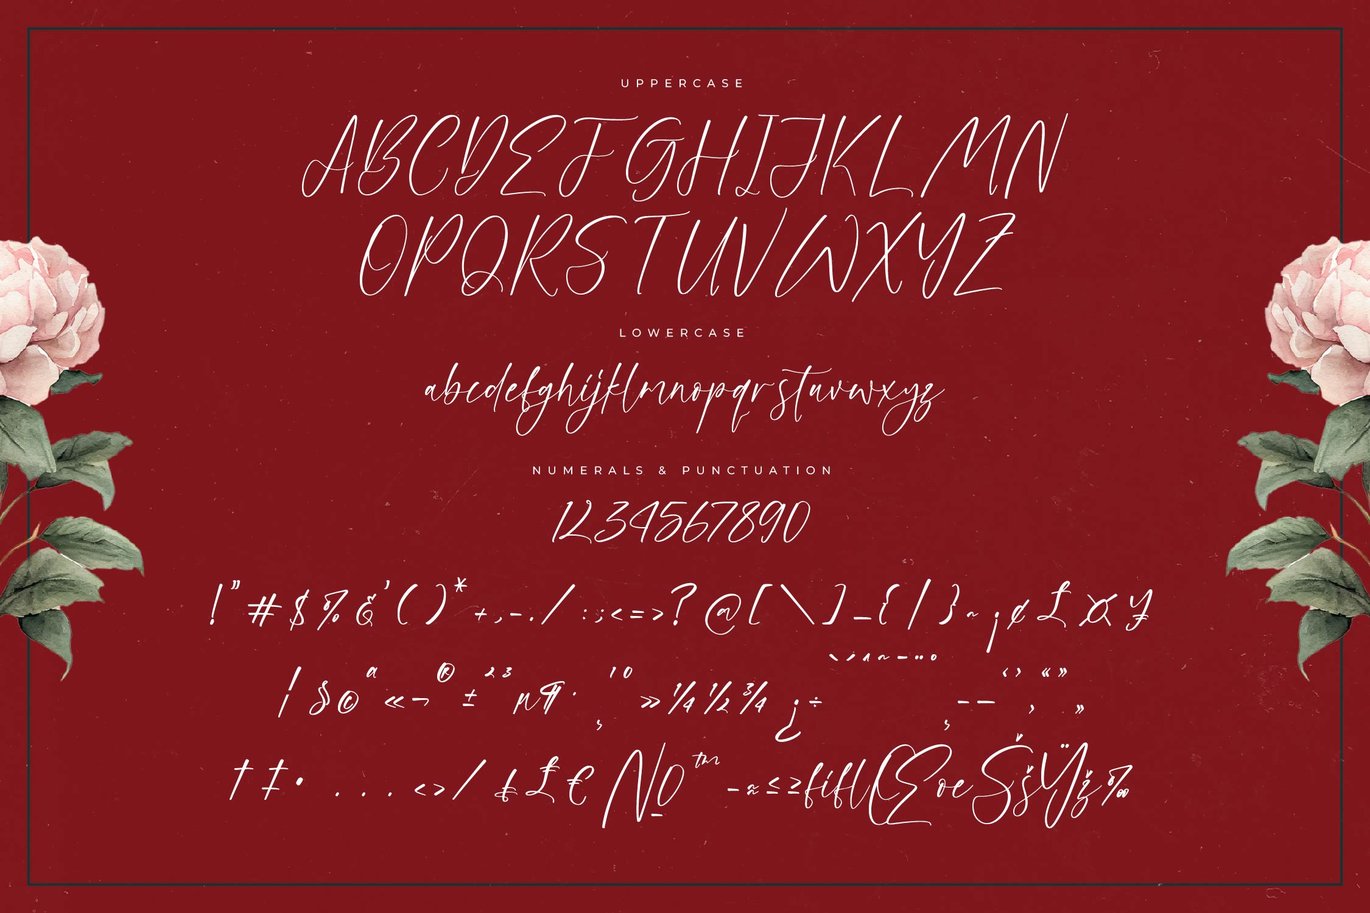 UPPERCASE
ABCDEFGHIJKLMN
OPQRSTUVWXYZ
LOWERCASE
abcdefghijklmnopqrstuvwxyz
NUMERALS & PUNCTUATION
1234567890
!"#$%&'()*+,-./:;<=>?@[\]_{|}~¡¢£¤¥
¦§©ª«¬®±²³µ¶·¸¹º»¼½¾¿÷ˋˊˆ˜¯˙¨˚¸–—‘’‚“”„
†‡•...‹›⁄₤£€№™−≈≤≥fiflŒœŠšŸž‰